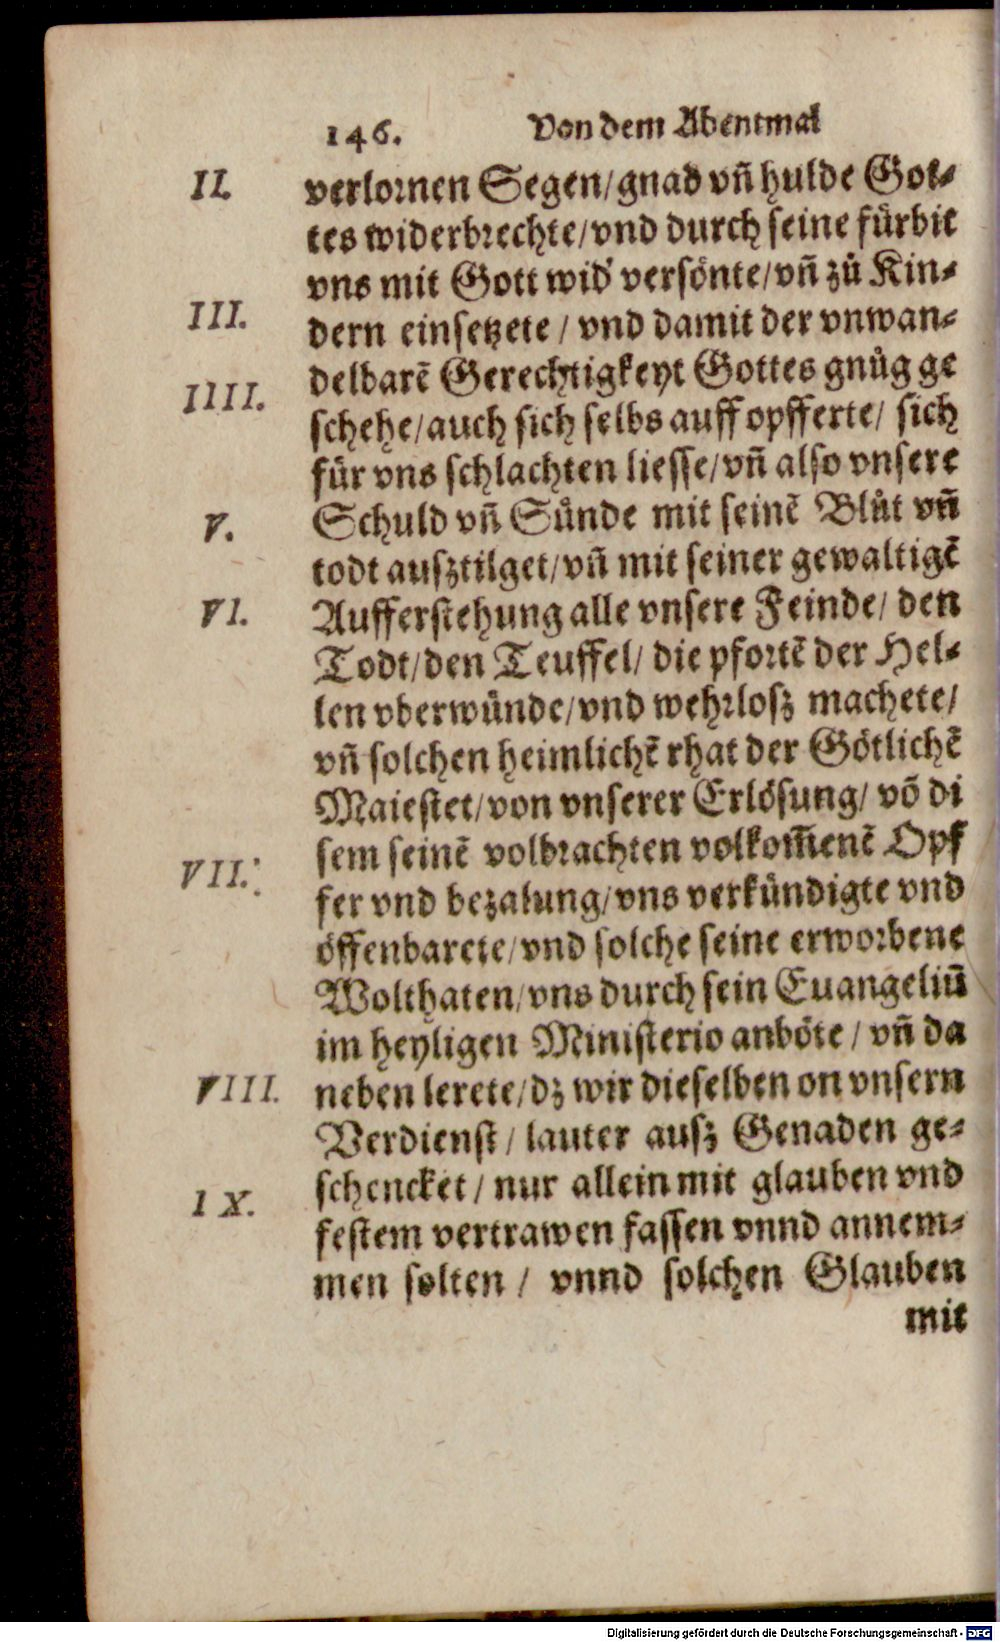 146. Von dem Abentmal
II. verlornen Segen/gnad vñ hulde Got-
tes widerbrechte/vnd durch seine fürbit
vns mit Gott wid' versönte/vñ zů Kin-
III. dern einsetzete / vnd damit der vnwan-
IIII. delbarẽ Gerechtigkeyt Gottes gnůg ge
schehe/auch sich selbs auff opfferte/ sich
für vns schlachten liesse/vñ also vnsere
V. Schuld vñ Sünde mit seinẽ Blůt vñ
todt ausztilget/vñ mit seiner gewaltigẽ
VI. Aufferstehung alle vnsere Feinde/ den
Todt/den Teuffel/ die pfortẽ der Hel-
len vberwünde/vnd wehrlosz machete/
vñ solchen heimlichẽ rhat der Götlichẽ
Maiestet/von vnserer Erlösung/ võ di
VII. sem seinẽ volbrachten volkom̃enẽ Opf
fer vnd bezalung/vns verkündigte vnd
öffenbarete/vnd solche seine erworbene
Wolthaten/vns durch sein Euangeliũ
im heyligen Ministerio anböte / vñ da
VIII. neben lerete/dz wir dieselben on vnsern
Verdienst / lauter ausz Genaden ge-
IX. schencket / nur allein mit glauben vnd
festem vertrawen fassen vnnd annem-
men solten / vnnd solchen Glauben
mit
Digitalisierung gefördert durch die Deutsche Forschungsgemeinschaft - DFG